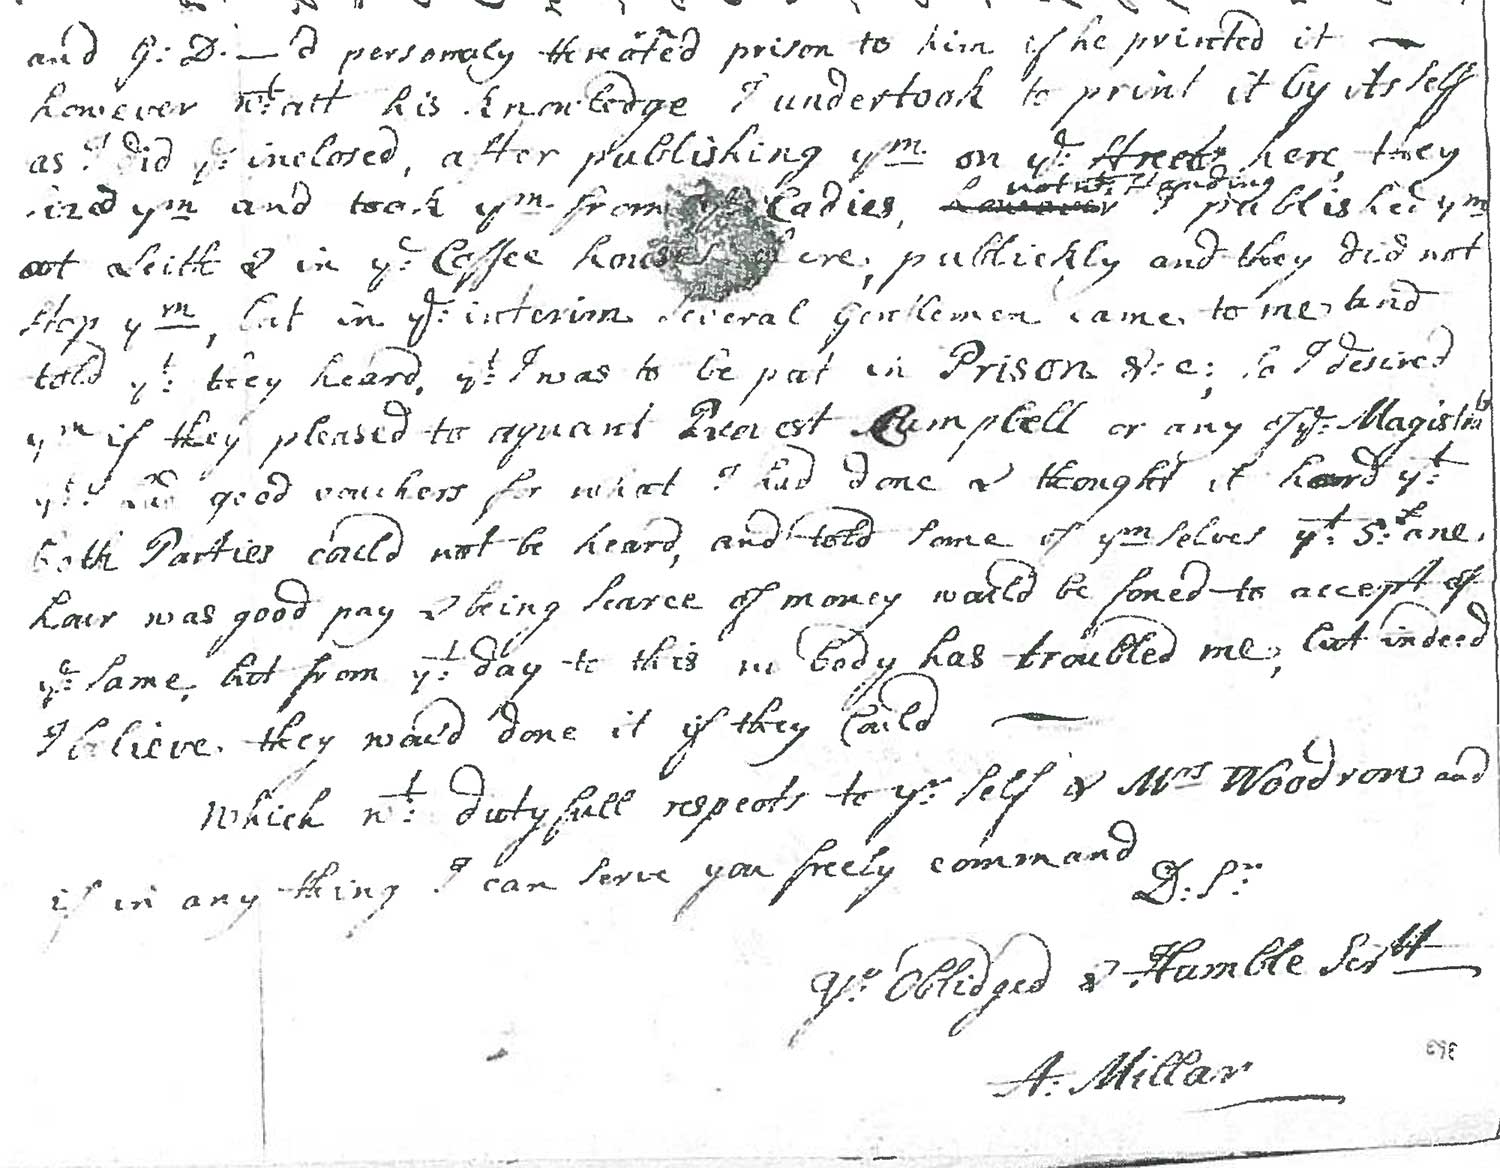 and G: D:—d personaly threate'd prison to him if he printed it —
however wt: att his knowledge I undertook to print it by its self
as I did ye: inclosed, after publishing ym on ye: streets here, they
ym and took ym from ye Cadies, notwt: standing I published ym
att Leith & in ye: Coffee houses here, publickly and they did not
stop ym, but in ye: interim several gentlemen came to me and
told yt: they heard, yt: I was to be put in Prison &:c; so I desired
ym if they pleased to aquant Provest Campbell or any of ye: Magistrats
yt: I had good vouchers for what I had done & thought it hard yt:
both Parties could not be heard, and told some of ym selves yt: St: ane
hour was good pay & being scarce of money would be foned to accept of
ye: same, but from yt: day to this no body has troubled me, but indeed
I believe they would done it if they could —
Which wt: dutyfull respects to yr self & Mrs Woodrow and
if in any thing I can serve you freely command
D: Sr:
Yr: Oblidged & Humble Servtt
A: Millar